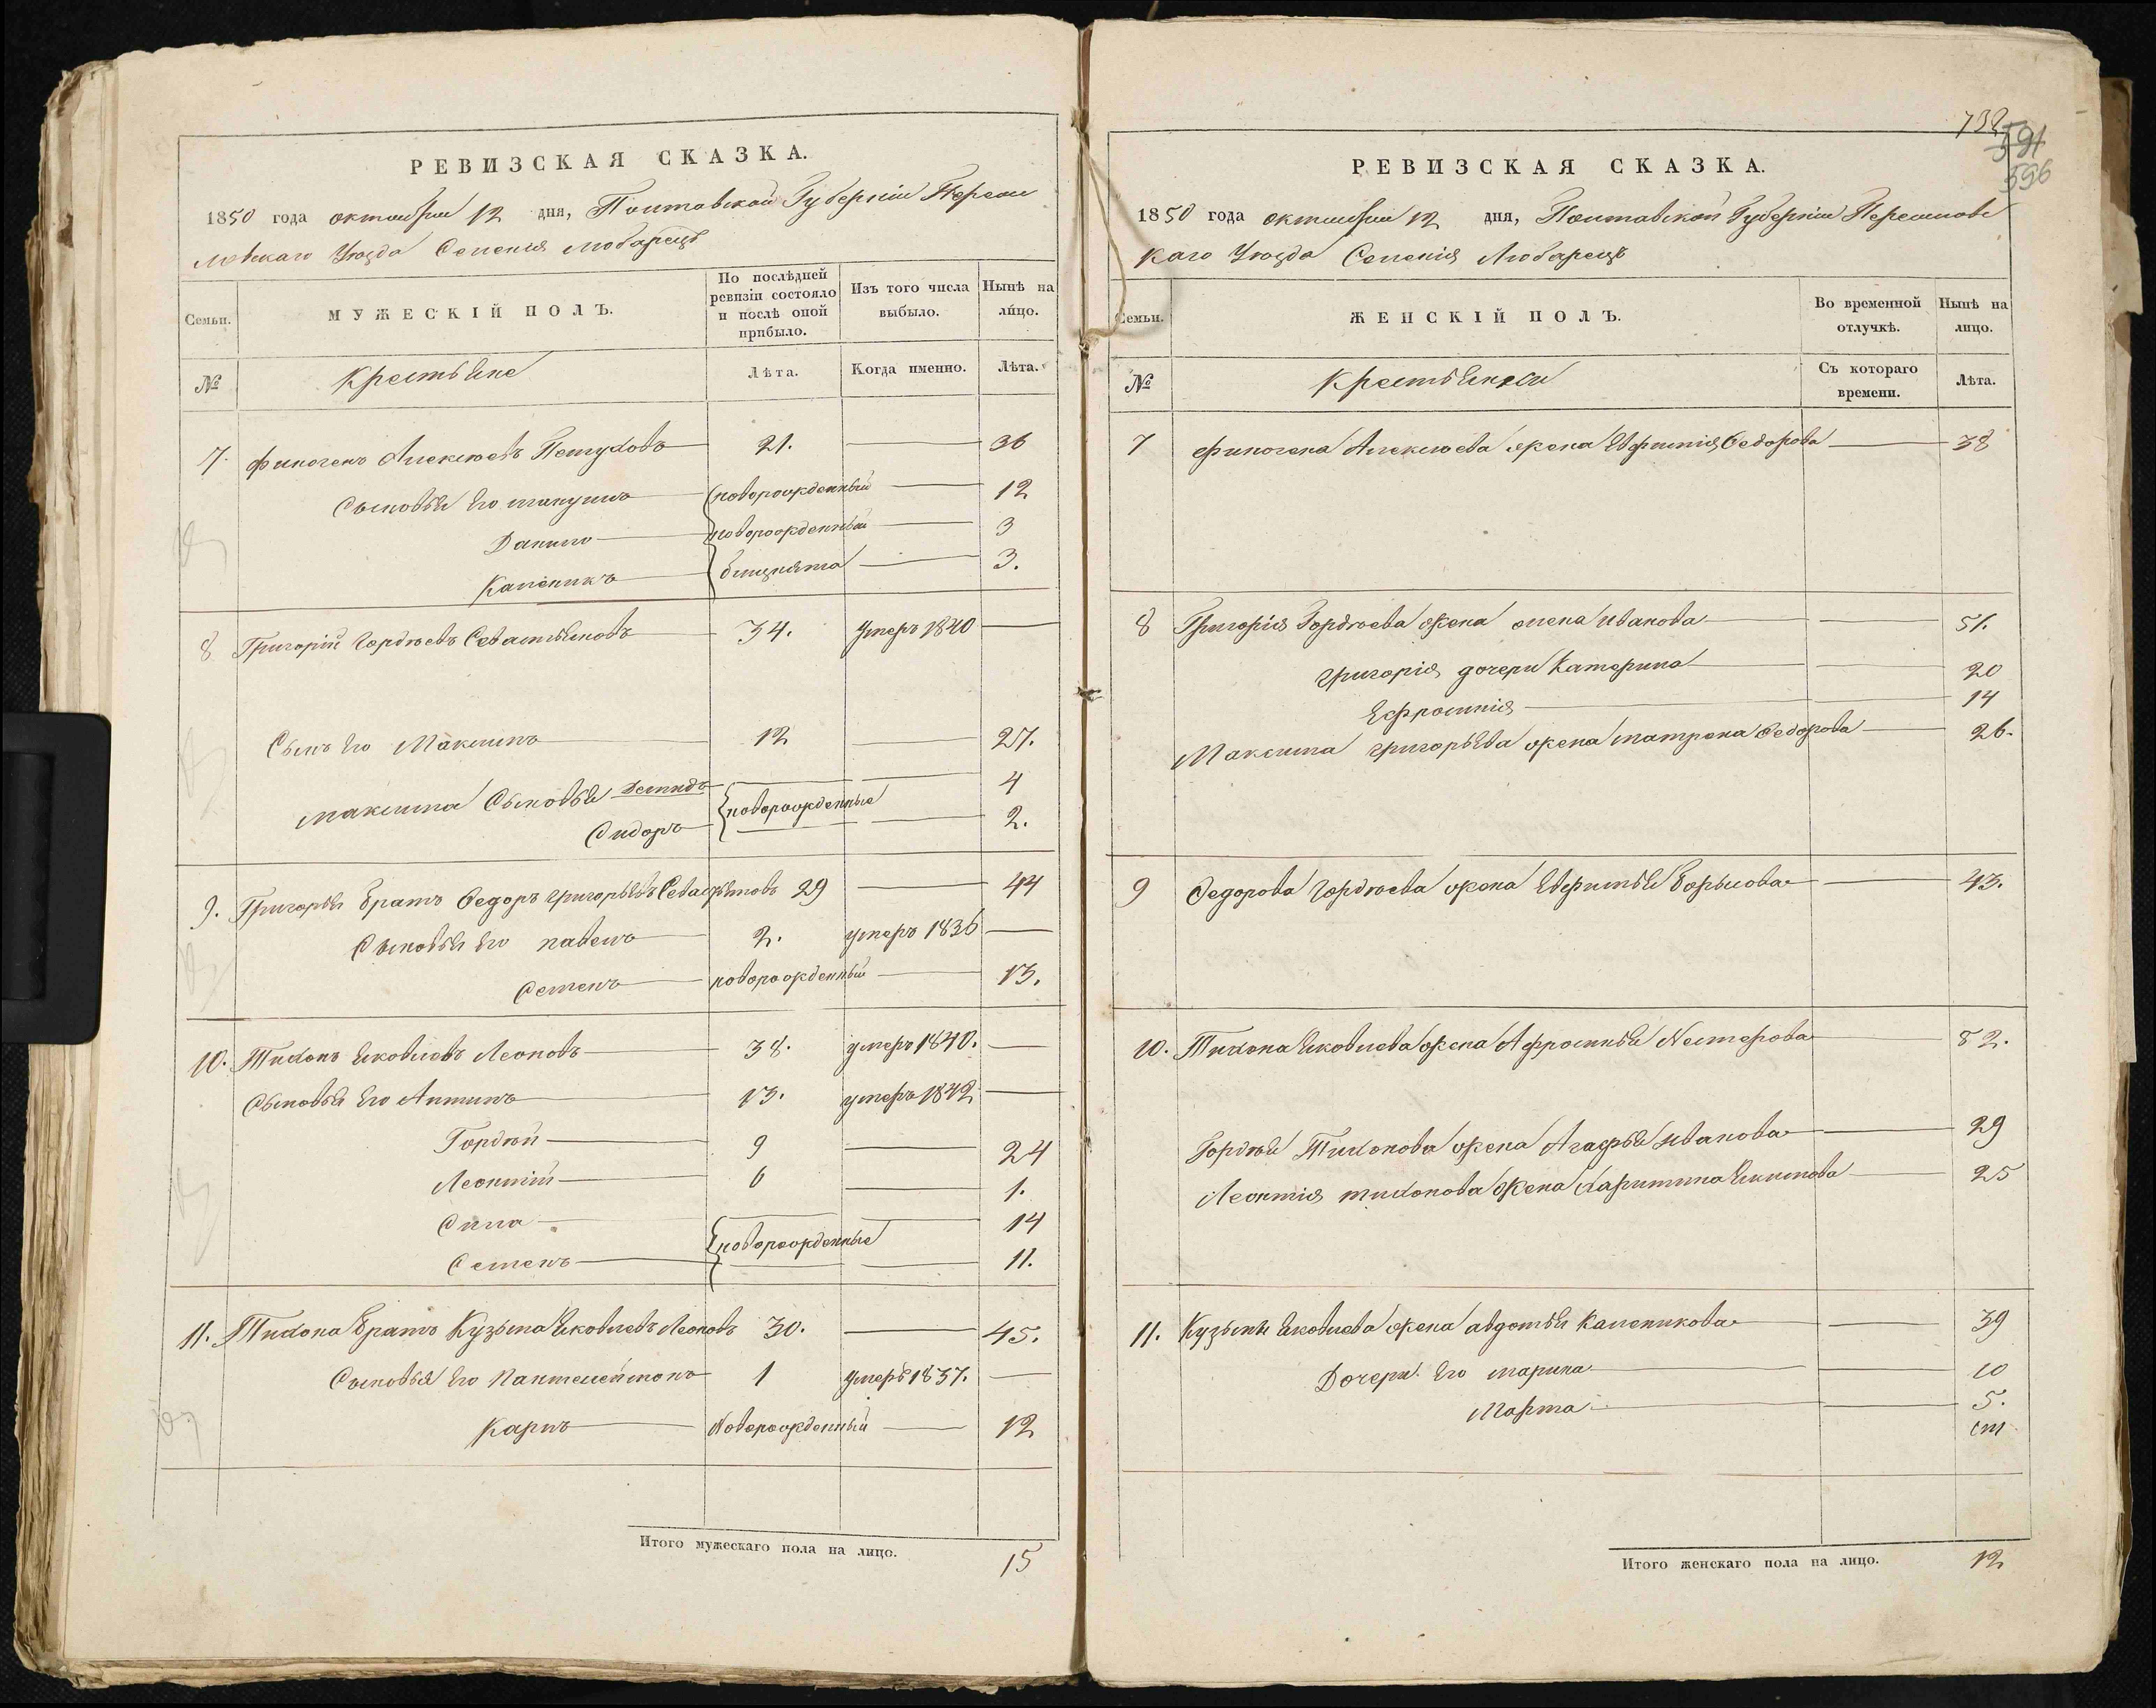 РЕВИЗСКАЯ СКАЗКА.
1850 года октября 12 дня, Полтавской Губерніи Переяс
ловскаго Уѣзда Селенія Любарецъ
Семьи.
МУЖЕСКІЙ ПОЛЪ.
По послѣдней ревизіи состояло и послѣ оной прибыло.
Изъ того числа выбыло.
Нынѣ на лицо.
№
Крестьяне
Лѣта.
Когда именно.
Лѣта.
7. Финогенъ Алексѣевъ Петуховъ 21. 36
Сыновья его новорожденный 12
Данило новорожденный 3
Каленикъ близнята 3.
8 Григорій Гордѣевъ Севастьяновъ 34. умеръ 1840
Сынъ его Максимъ 12 27.
максима Сыновья Демидъ 4
новорожденные
Сидоръ 2.
9. Григорья братъ Федоръ григорьевъ Севастьяновъ 29 44
Сыновья его павелъ 2. умеръ 1836
Семенъ новорожденный 13.
10. Тихонъ яковлевъ Леоновъ 38. умеръ 1840.
Сыновья его Антипъ 13. умеръ 1842
Гордѣй 9 24
Леонтій 6 1.
Сила 14
новорожденные
Семенъ 11.
11. Тихона братъ Кузьма яковлевъ Леоновъ 30. 45.
Сыновья его Пантелеймонъ 1 умеръ 1837.
Карпъ Новорожденный 12
Итого мужескаго пола на лицо. 15
738
591
596
РЕВИЗСКАЯ СКАЗКА.
1850 года октября 12 дня, Полтавской Губерніи Переяловс
каго Уѣзда Селенія Любарецъ
Семьи.
ЖЕНСКІЙ ПОЛЪ.
Во временной отлучкѣ.
Нынѣ на лицо.
№
Крестьянки
Съ котораго времени.
Лѣта.
7 финогена Алексѣева жена Евфимія Федорова 38
8 Григорія Гордѣева жена елена иванова 51.
григорія дочери Катерина 20
Ефросинія 14
Максима григорьева жена матрена Федорова 26.
9 Федорова Гордѣева жена Евфимья борысова 43.
10. Тихона яковлева жена Афросинья Нестерова 52.
Гордѣя Тихонова жена Агафья иванова 29
Леонтія тихонова жена Харитина якимова 25
11. Кузьмы яковлева жена авдотья Каленикова 39
Дочери его марина 10
Марта 5.
ст
Итого женскаго пола на лицо. 12